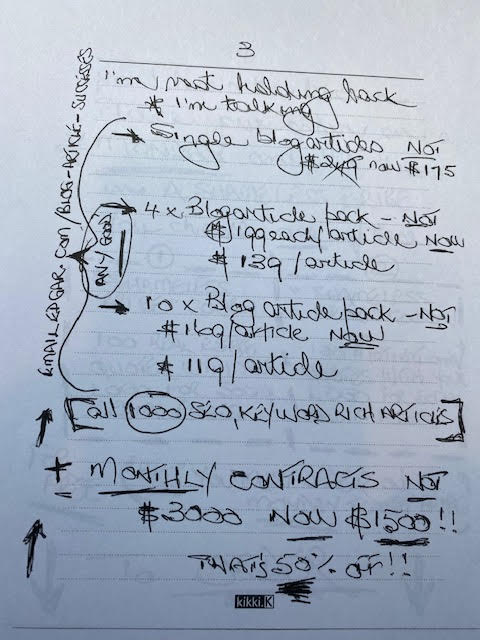 3
I'm not holding back
& I'm talking
Single blog articles NOT
$249 now $175
4 x Blog article pack - NOT
$199 each/article NOW
$139/article
10 x Blog article pack - NOT
$169/article NOW
$119/article
[all 1000 SEO, KEYWORD RICH ARTICLES]
+ MONTHLY CONTRACTS NOT
$3000 NOW $1500!!
THAT'S 50% OFF!!
kikki.K
ANY GOOD
.COM/BLOG-ARTICLE-SUCCESSES